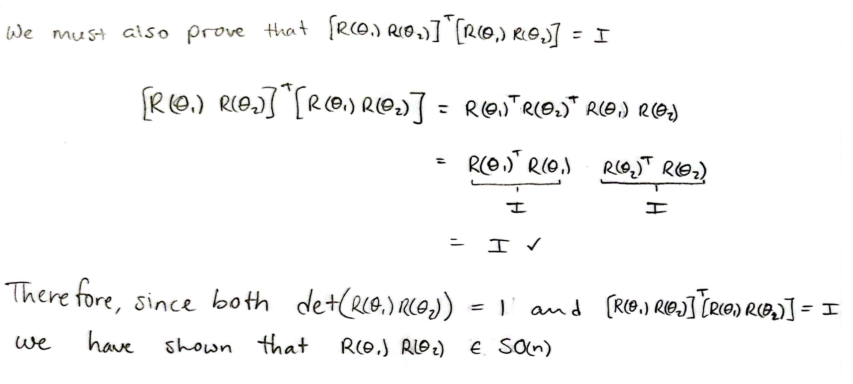 We must also prove that [R(θ₁) R(θ₂)]ᵀ[R(θ₁) R(θ₂)] = I
[R(θ₁) R(θ₂)]ᵀ[R(θ₁) R(θ₂)] = R(θ₁)ᵀ R(θ₂)ᵀ R(θ₁) R(θ₂)
= R(θ₁)ᵀ R(θ₁) R(θ₂)ᵀ R(θ₂)
I I
= I ✓
Therefore, since both det(R(θ₁) R(θ₂)) = 1 and [R(θ₁) R(θ₂)]ᵀ[R(θ₁) R(θ₂)] = I
we have shown that R(θ₁) R(θ₂) ∈ SO(n)